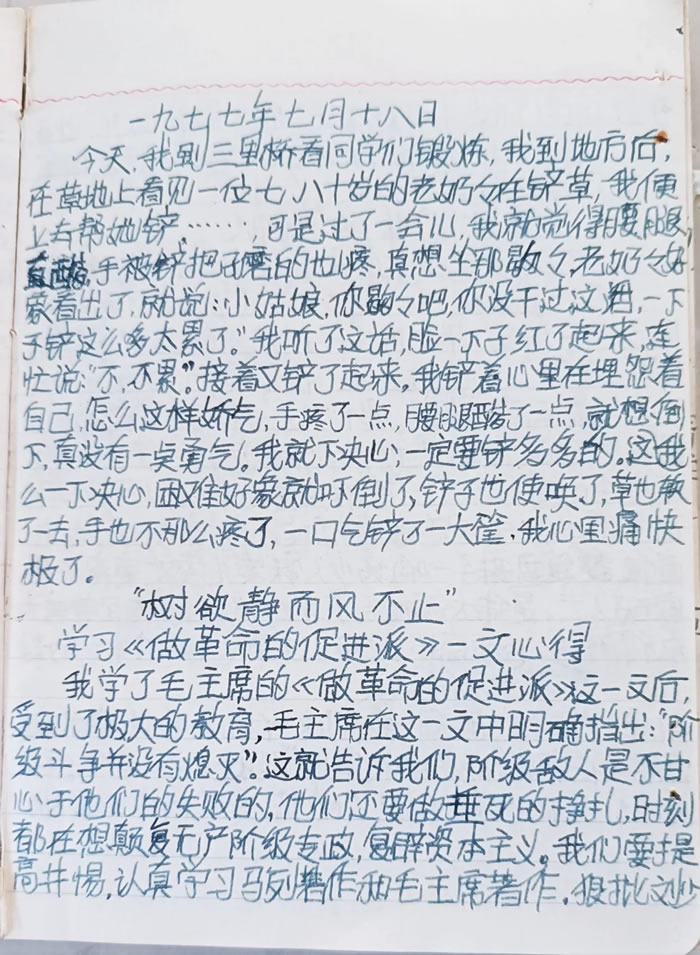 一九七七年七月十八日
今天,我到三里桥看同学们锻炼,我到地方后,
在草地上看见一位七、八十岁的老奶々在铲草,我便
上去帮她铲……,可是过了一会儿,我就觉得腰腿
酸,手被铲把磨的也疼,真想坐那歇々,老奶々好
象看出了,就说:小姑娘,你歇々吧,你没干过这活,一下
子铲这么多太累了。"我听了这话,脸一下子红了起来,连
忙说:"不,不累"。接着又铲了起来。我铲着心里在埋怨着
自己,怎么这样娇气,手疼了一点,腰腿酸了一点,就想倒
下,真没有一点勇气。我就下决心,一定要铲多多的。这我
么一下决心,困难好象就吓倒了,铲子也使唤了,草也软
了一去,手也不那么疼了,一口气铲了一大筐,我心里痛快
极了。
"树欲静而风不止"
学习《做革命的促进派》一文心得
我学了毛主席的《做革命的促进派》这一文后,
受到了极大的教育,毛主席在这一文中明确指出:"阶
级斗争并没有熄灭"。这就告诉我们,阶级敌人是不甘
心于他们的失败的,他们还要做垂死的挣扎,时刻
都在想颠复无产阶级专政,复辟资本主义。我们要提
高井惕,认真学习马列著作和毛主席著作。狠批